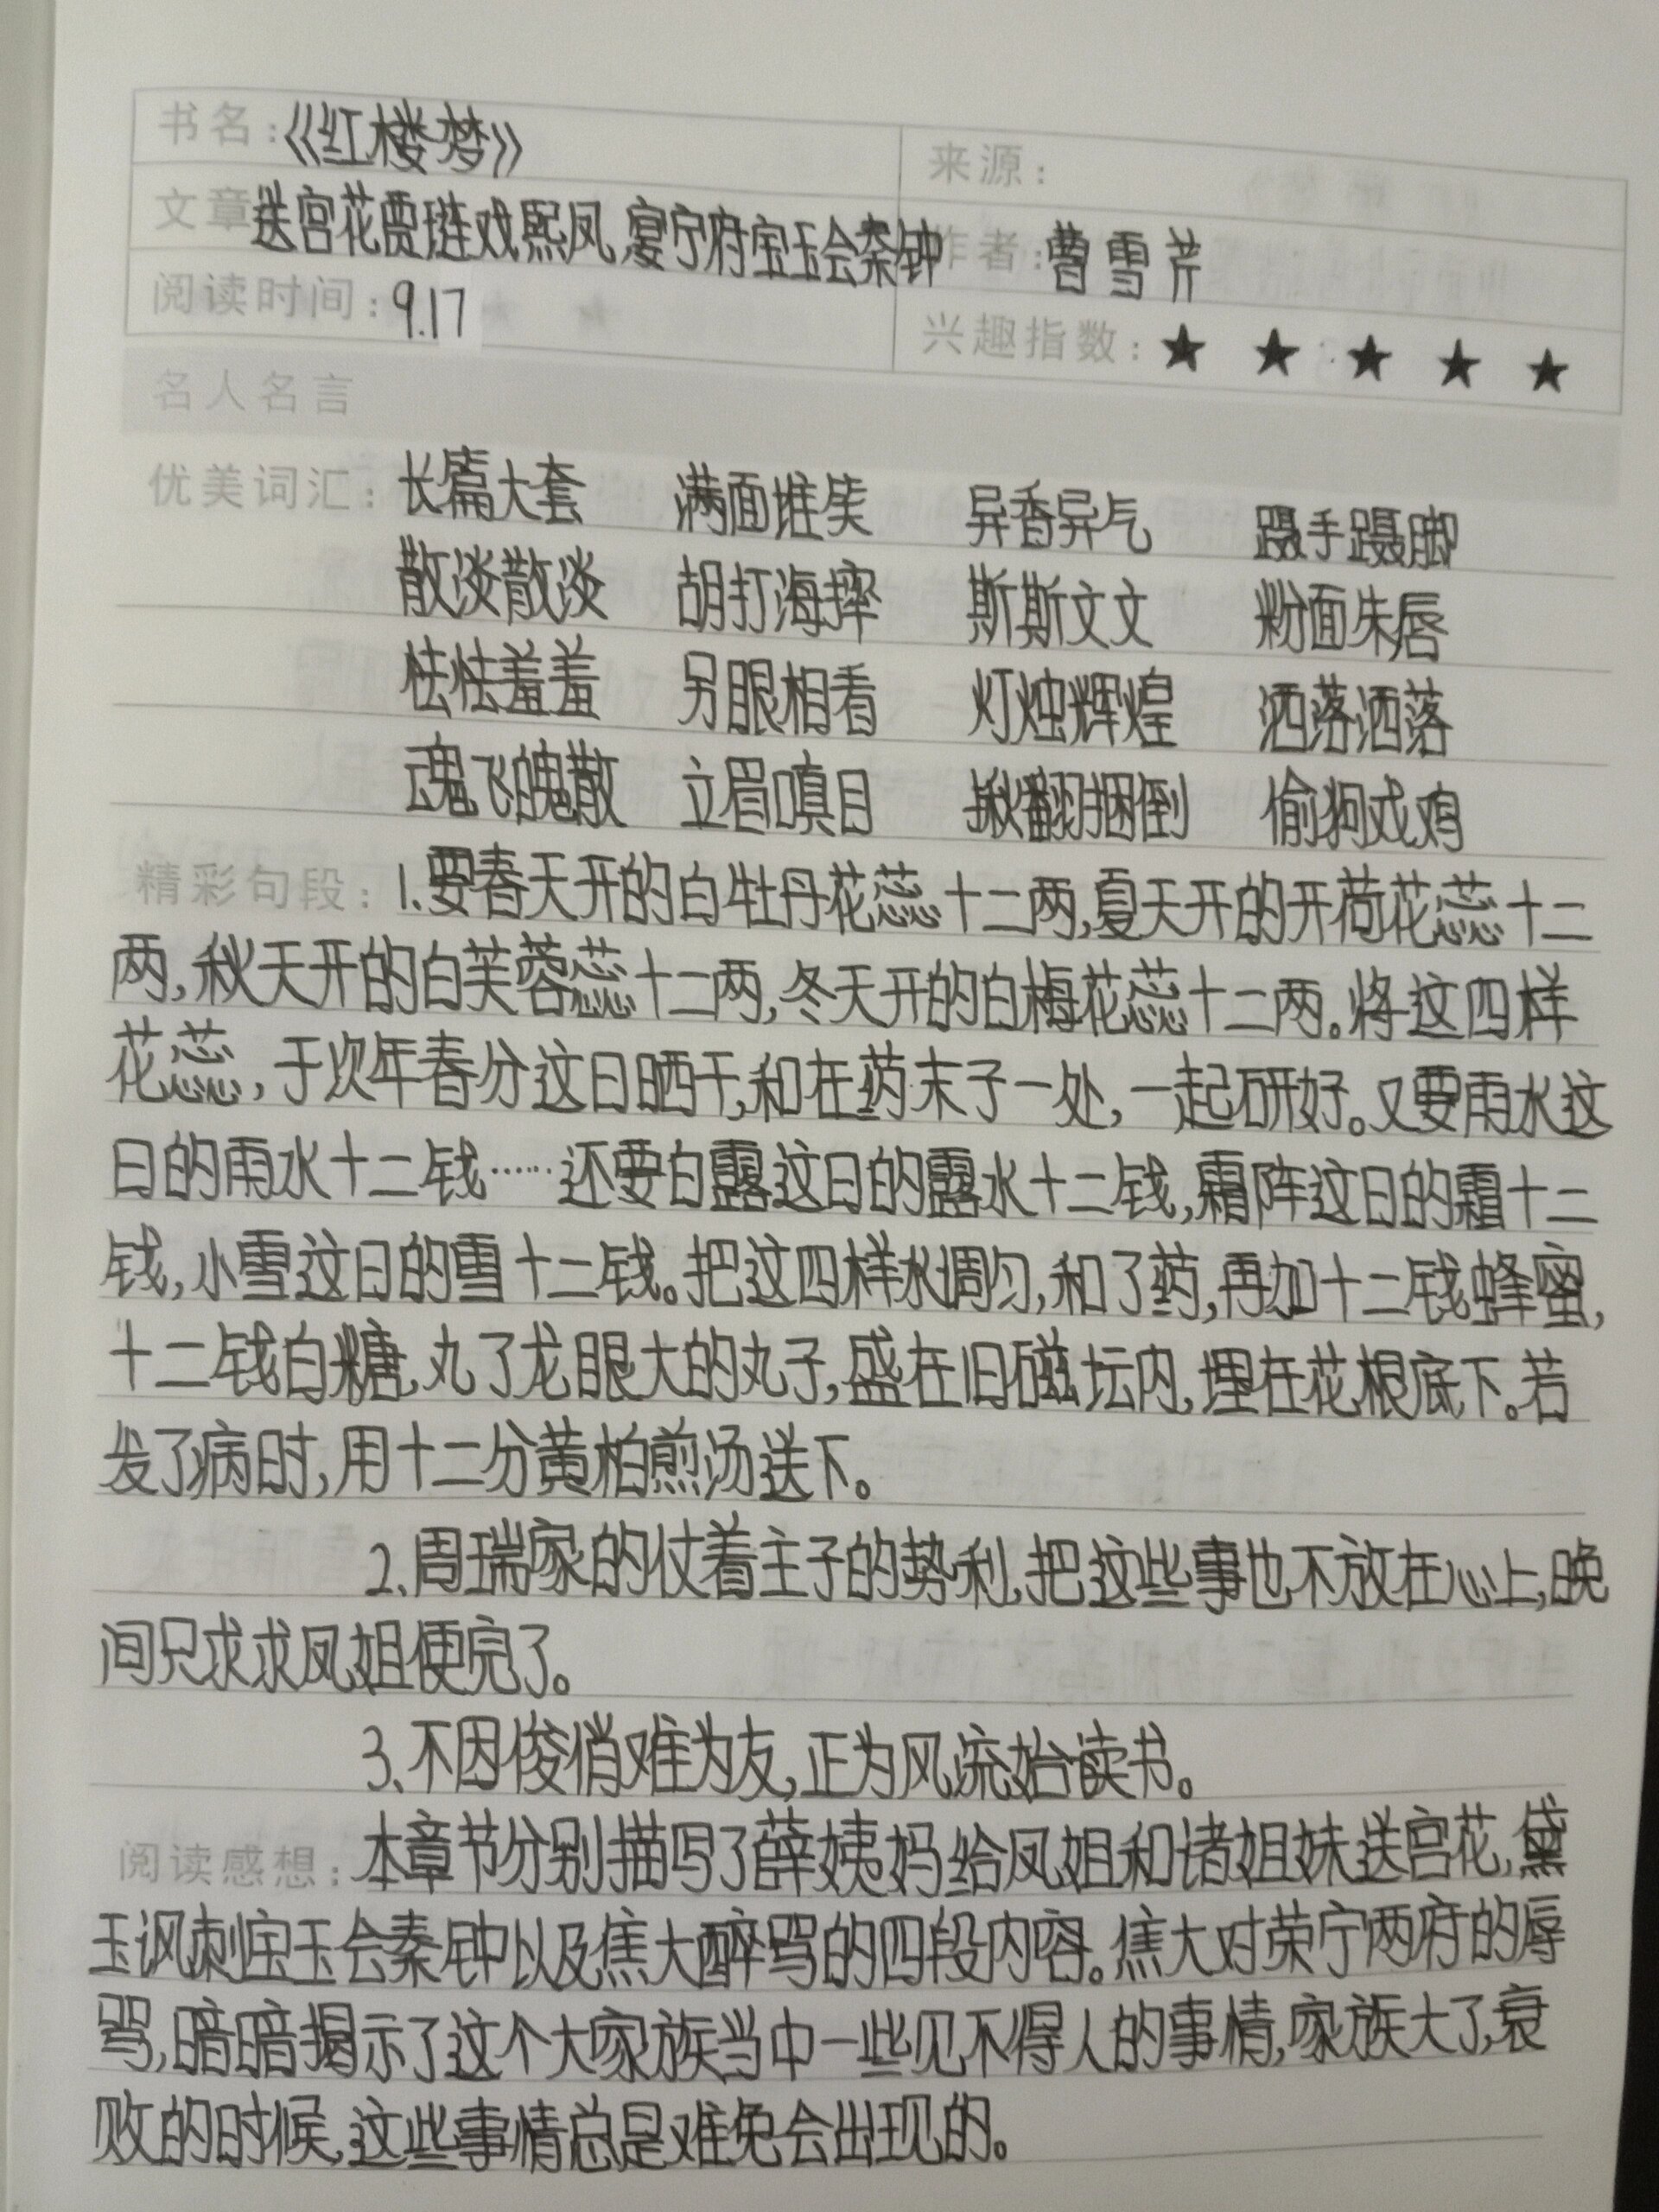 书名：《红楼梦》 来源：
文章 送宫花贾琏戏熙凤，宴宁府宝玉会秦钟 作者：曹雪芹
阅读时间：9.17 兴趣指数：★ ★ ★ ★ ★
名人名言
优美词汇：长篇大套 满面堆笑 异香异气 蹑手蹑脚
散淡散淡 胡打海摔 斯斯文文 粉面朱唇
怯怯羞羞 另眼相看 灯烛辉煌 洒落洒落
魂飞魄散 立眉嗔目 揪翻捆倒 偷狗戏鸡
精彩句段：1.要春天开的白牡丹花蕊十二两，夏天开的开荷花蕊十二
两，秋天开的白芙蓉蕊十二两，冬天开的白梅花蕊十二两。将这四样
花蕊，于次年春分这日晒干，和在药末子一处，一起研好。又要雨水这
日的雨水十二钱……还要白露这日的露水十二钱，霜阵这日的霜十二
钱，小雪这日的雪十二钱。把这四样水调匀，和了药，再加十二钱蜂蜜，
十二钱白糖，丸了龙眼大的丸子，盛在旧磁坛内，埋在花根底下。若
发了病时，用十二分黄柏煎汤送下。
2、周瑞家的仗着主子的势利，把这些事也不放在心上，晚
间只求求凤姐便完了。
3、不因俊俏难为友，正为风流始读书。
阅读感想：本章节分别描写了薛姨妈给凤姐和诸姐妹送宫花，黛
玉讽刺宝玉会秦钟以及焦大醉骂的四段内容。焦大对荣宁两府的辱
骂，暗暗揭示了这个大家族当中一些见不得人的事情，家族大了，衰
败的时候，这些事情总是难免会出现的。